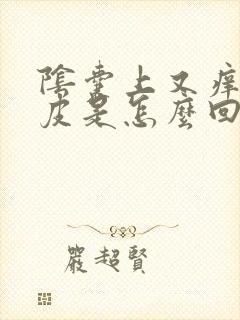 陰囊上又痒
皮是怎麼回
嚴超賢